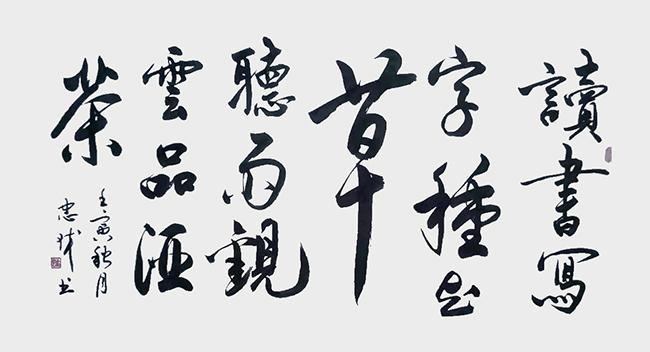 讀書寫
字種花
草
聽雨觀
雲品酒
茶
壬寅秋月
忠 书